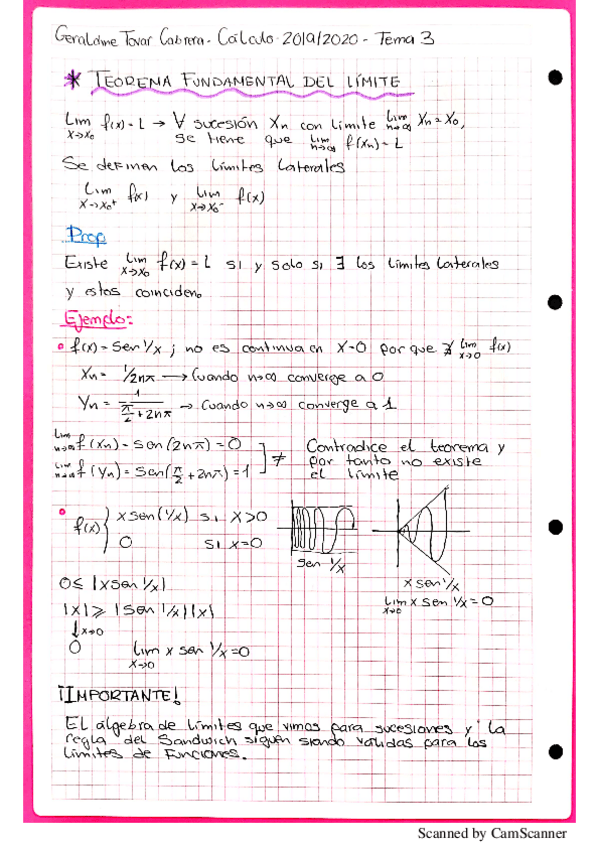 Geraldine Tovar Cabrera - Cálculo 2019/2020 - Tema 3
* TEOREMA FUNDAMENTAL DEL LÍMITE
Lim x→x₀ f(x) = L → ∀ sucesión Xn con límite lim n→∞ Xn = X₀,
se tiene que lim n→∞ f(Xn) = L
Se definen los límites laterales
Lim x→x₀⁺ f(x) y Lim x→x₀⁻ f(x)
Prop
Existe Lim x→x₀ f(x) = L si y solo si ∃ los límites laterales
y estos coinciden.
Ejemplo:
f(x) = Sen 1/x ; no es continua en X=0 por que ∄ lim x→0 f(x)
Xn = 1/2nπ → Cuando n→∞ converge a 0
Yn = 1/(π/2 + 2nπ) → Cuando n→∞ converge a 1
Lim n→∞ f(Xn) = Sen(2nπ) = 0
Lim n→∞ f(Yn) = Sen(π/2 + 2nπ) = 1
] ≠
Contradice el teorema y
por tanto no existe
el límite
f(x) { x sen(1/x) si x>0
0 si x=0
sen 1/x
x sen 1/x
Lim x→0 x sen 1/x = 0
0 ≤ |x sen 1/x|
|x| ≥ |sen 1/x||x|
↓ x→0
0 Lim x→0 x sen 1/x = 0
¡IMPORTANTE!
El álgebra de límites que vimos para sucesiones y la
regla del Sandwich siguen siendo válidas para los
límites de funciones.
Scanned by CamScanner